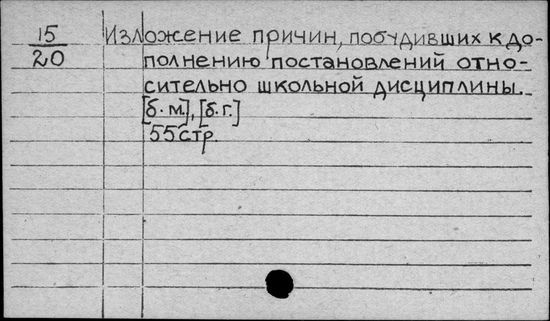 15 Изложение причин, побудивших к до-
20 полнению постановлений отно-
сительно школьной дисциплины.
[б.м.], [б.г.]
55 стр.